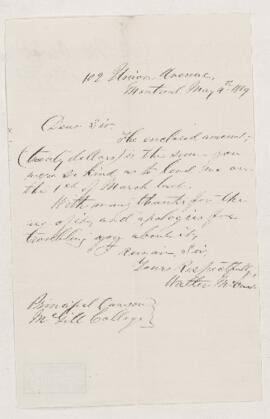 102 Union Avenue,
Montreal May 4th 1889
Dear Sir
The enclosed amount,
(twenty dollars) is the sum you
were so kind as to lend me on
the 1st of March last.
With many thanks for the
use of it, and apologies for
troubling you about it
I remain, Sir,
Yours Respectfully,
Walter
Principal Dawson
McGill College